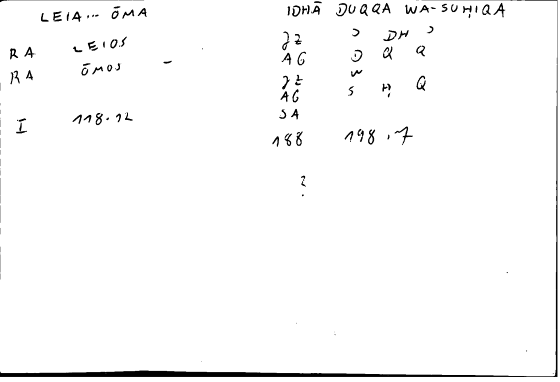 LEIA... ŌMA
RA LEIOS
RA ŌMOS -
I 118.12
IDHĀ DUQQA WA-SUḤIQA
ʾ DH ʾ
AG D Q Q
W
AG S Ḥ Q
SA
188 198.7
?